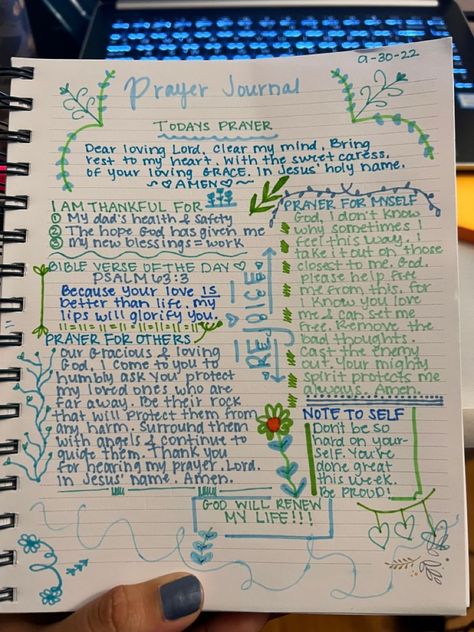 9-30-22
Prayer Journal
TODAYS PRAYER
Dear loving Lord, clear my mind. Bring
rest to my heart. With the sweet caress
of your loving GRACE. In Jesus' holy name.
~♡AMEN♡~
I AM THANKFUL FOR
① My dad's health & safety
② The hope God has given me
③ my new blessings = work
BIBLE VERSE OF THE DAY ♡
PSALM 63:3
Because your love is
better than life, my
lips will glorify you.
PRAYER FOR OTHERS
Our Gracious & loving
God, I come to you to
humbly ask you protect
my loved ones who are
far away. Be their rock
that will protect them from
any harm. Surround them
with angels & continue to
guide them. Thank you
for hearing my prayer, Lord.
In Jesus' name. Amen.
REJOICE
PRAYER FOR MYSELF
God, I don't know
why sometimes I
feel this way. I
take it out on those
closest to me. God,
please help free
me from this. for
I know you love
me & can set me
free. Remove the
bad thoughts.
Cast the enemy
out. Your mighty
Spirit protects me
always. Amen.
NOTE TO SELF
Don't be so
hard on your-
self. You've
done great
this week.
Be PROUD!
GOD WILL RENEW
MY LIFE!!!